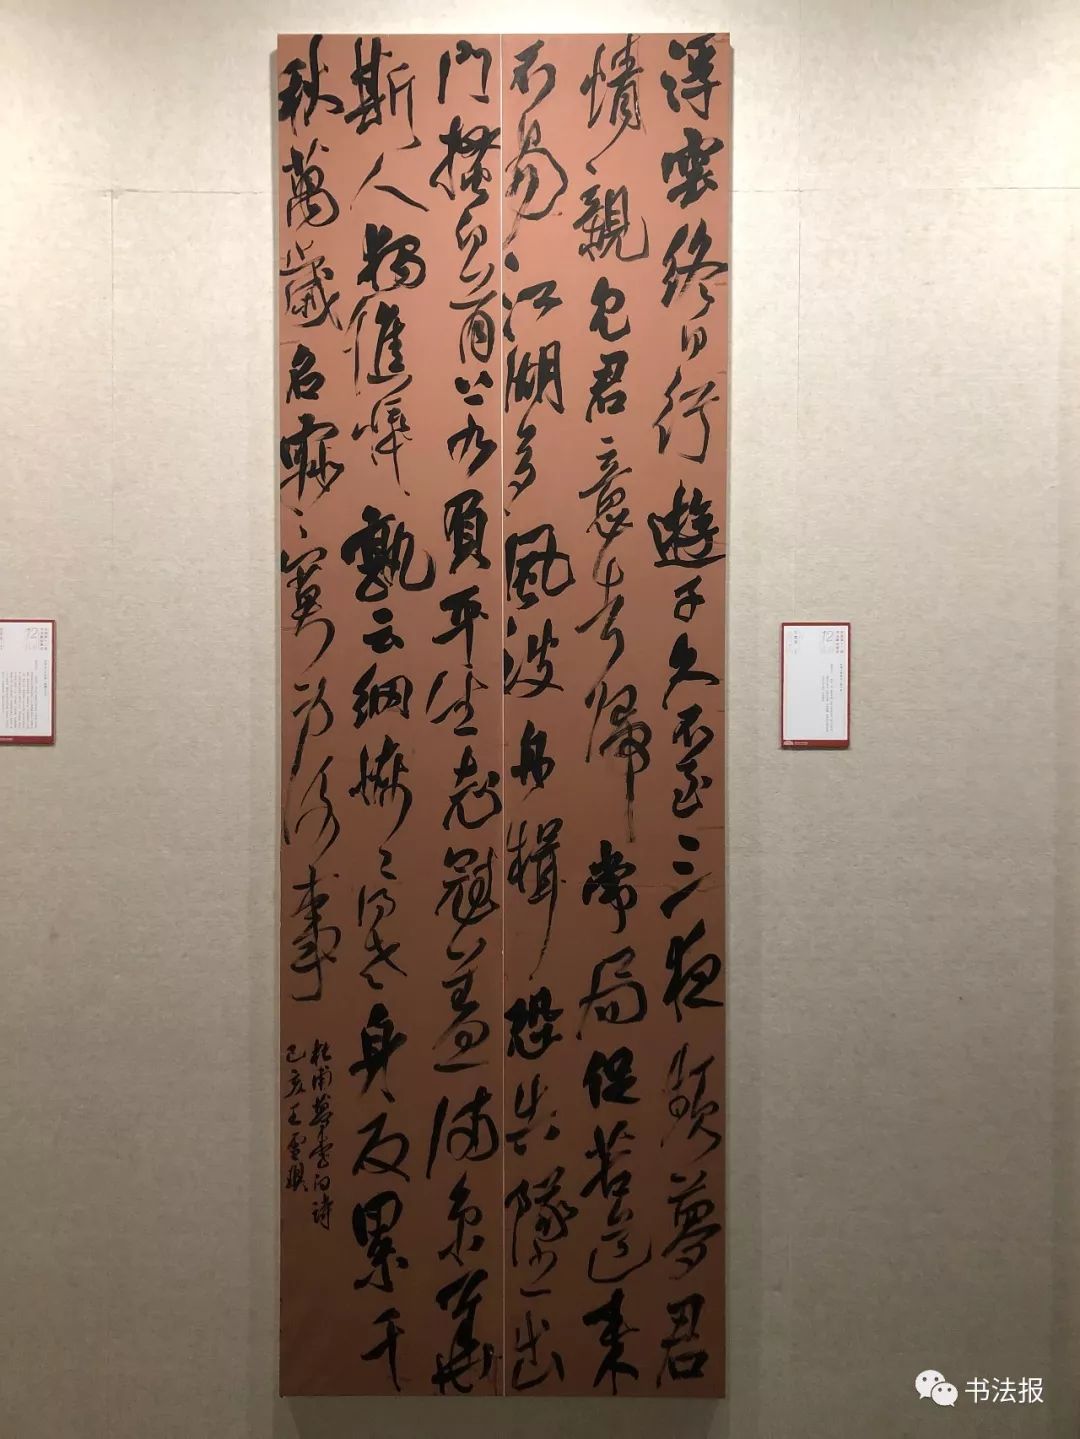 浮雲終日行遊子久不至三夜頻夢君
情親見君意告歸常局促苦道來
不易江湖多風波舟楫恐失墜出
門搔白首若負平生志冠蓋滿京華
斯人獨憔悴孰云網恢〻將老身反累千
秋萬歲名寂〻寞身後事
杜甫夢李白詩
己亥王
12
12
书法报